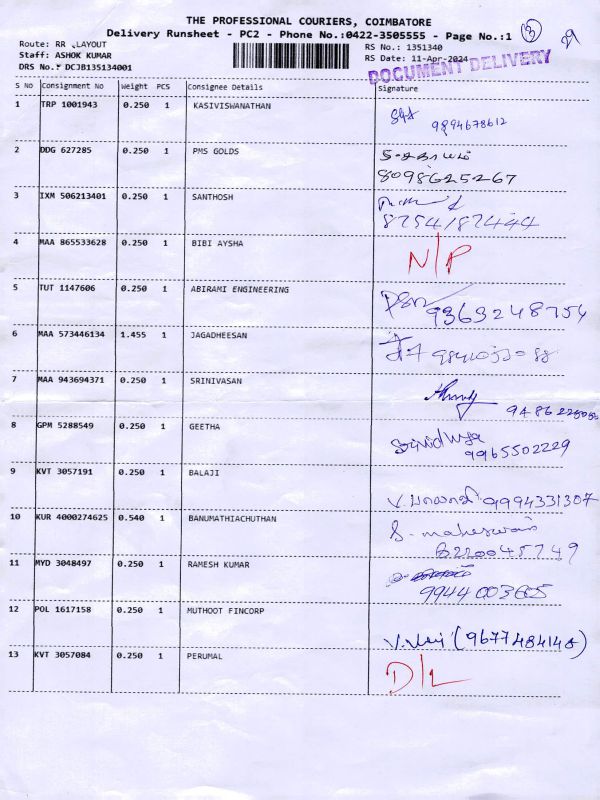 THE PROFESSIONAL COURIERS, COIMBATORE
Delivery Runsheet - PC2 - Phone No.:0422-3505555 - Page No.:1
Route: RR LAYOUT RS No.: 1351340
Staff: ASHOK KUMAR RS Date: 11-Apr-2024
DRS No.: DCJB135134001
DOCUMENT DELIVERY
S No Consignment No Weight PCS Consignee Details Signature
1 TRP 1001943 0.250 1 KASIVISWANATHAN
9894678612
2 DDG 627285 0.250 1 PMS GOLDS
8098625267
3 IXM 506213401 0.250 1 SANTHOSH
8754187444
4 MAA 865533628 0.250 1 BIBI AYSHA N/P
5 TUT 1147606 0.250 1 ABIRAMI ENGINEERING
9363248754
6 MAA 573446134 1.455 1 JAGADHEESAN
7 MAA 943694371 0.250 1 SRINIVASAN
8 GPM 5288549 0.250 1 GEETHA Srividhya
9965502229
9 KVT 3057191 0.250 1 BALAJI
9994331307
10 KUR 4000274625 0.540 1 BANUMATHIACHUTHAN
S. maheswari
6220045749
11 MYD 3048497 0.250 1 RAMESH KUMAR
9944003605
12 POL 1617158 0.250 1 MUTHOOT FINCORP
(9677484148)
13 KVT 3057084 0.250 1 PERUMAL D/L